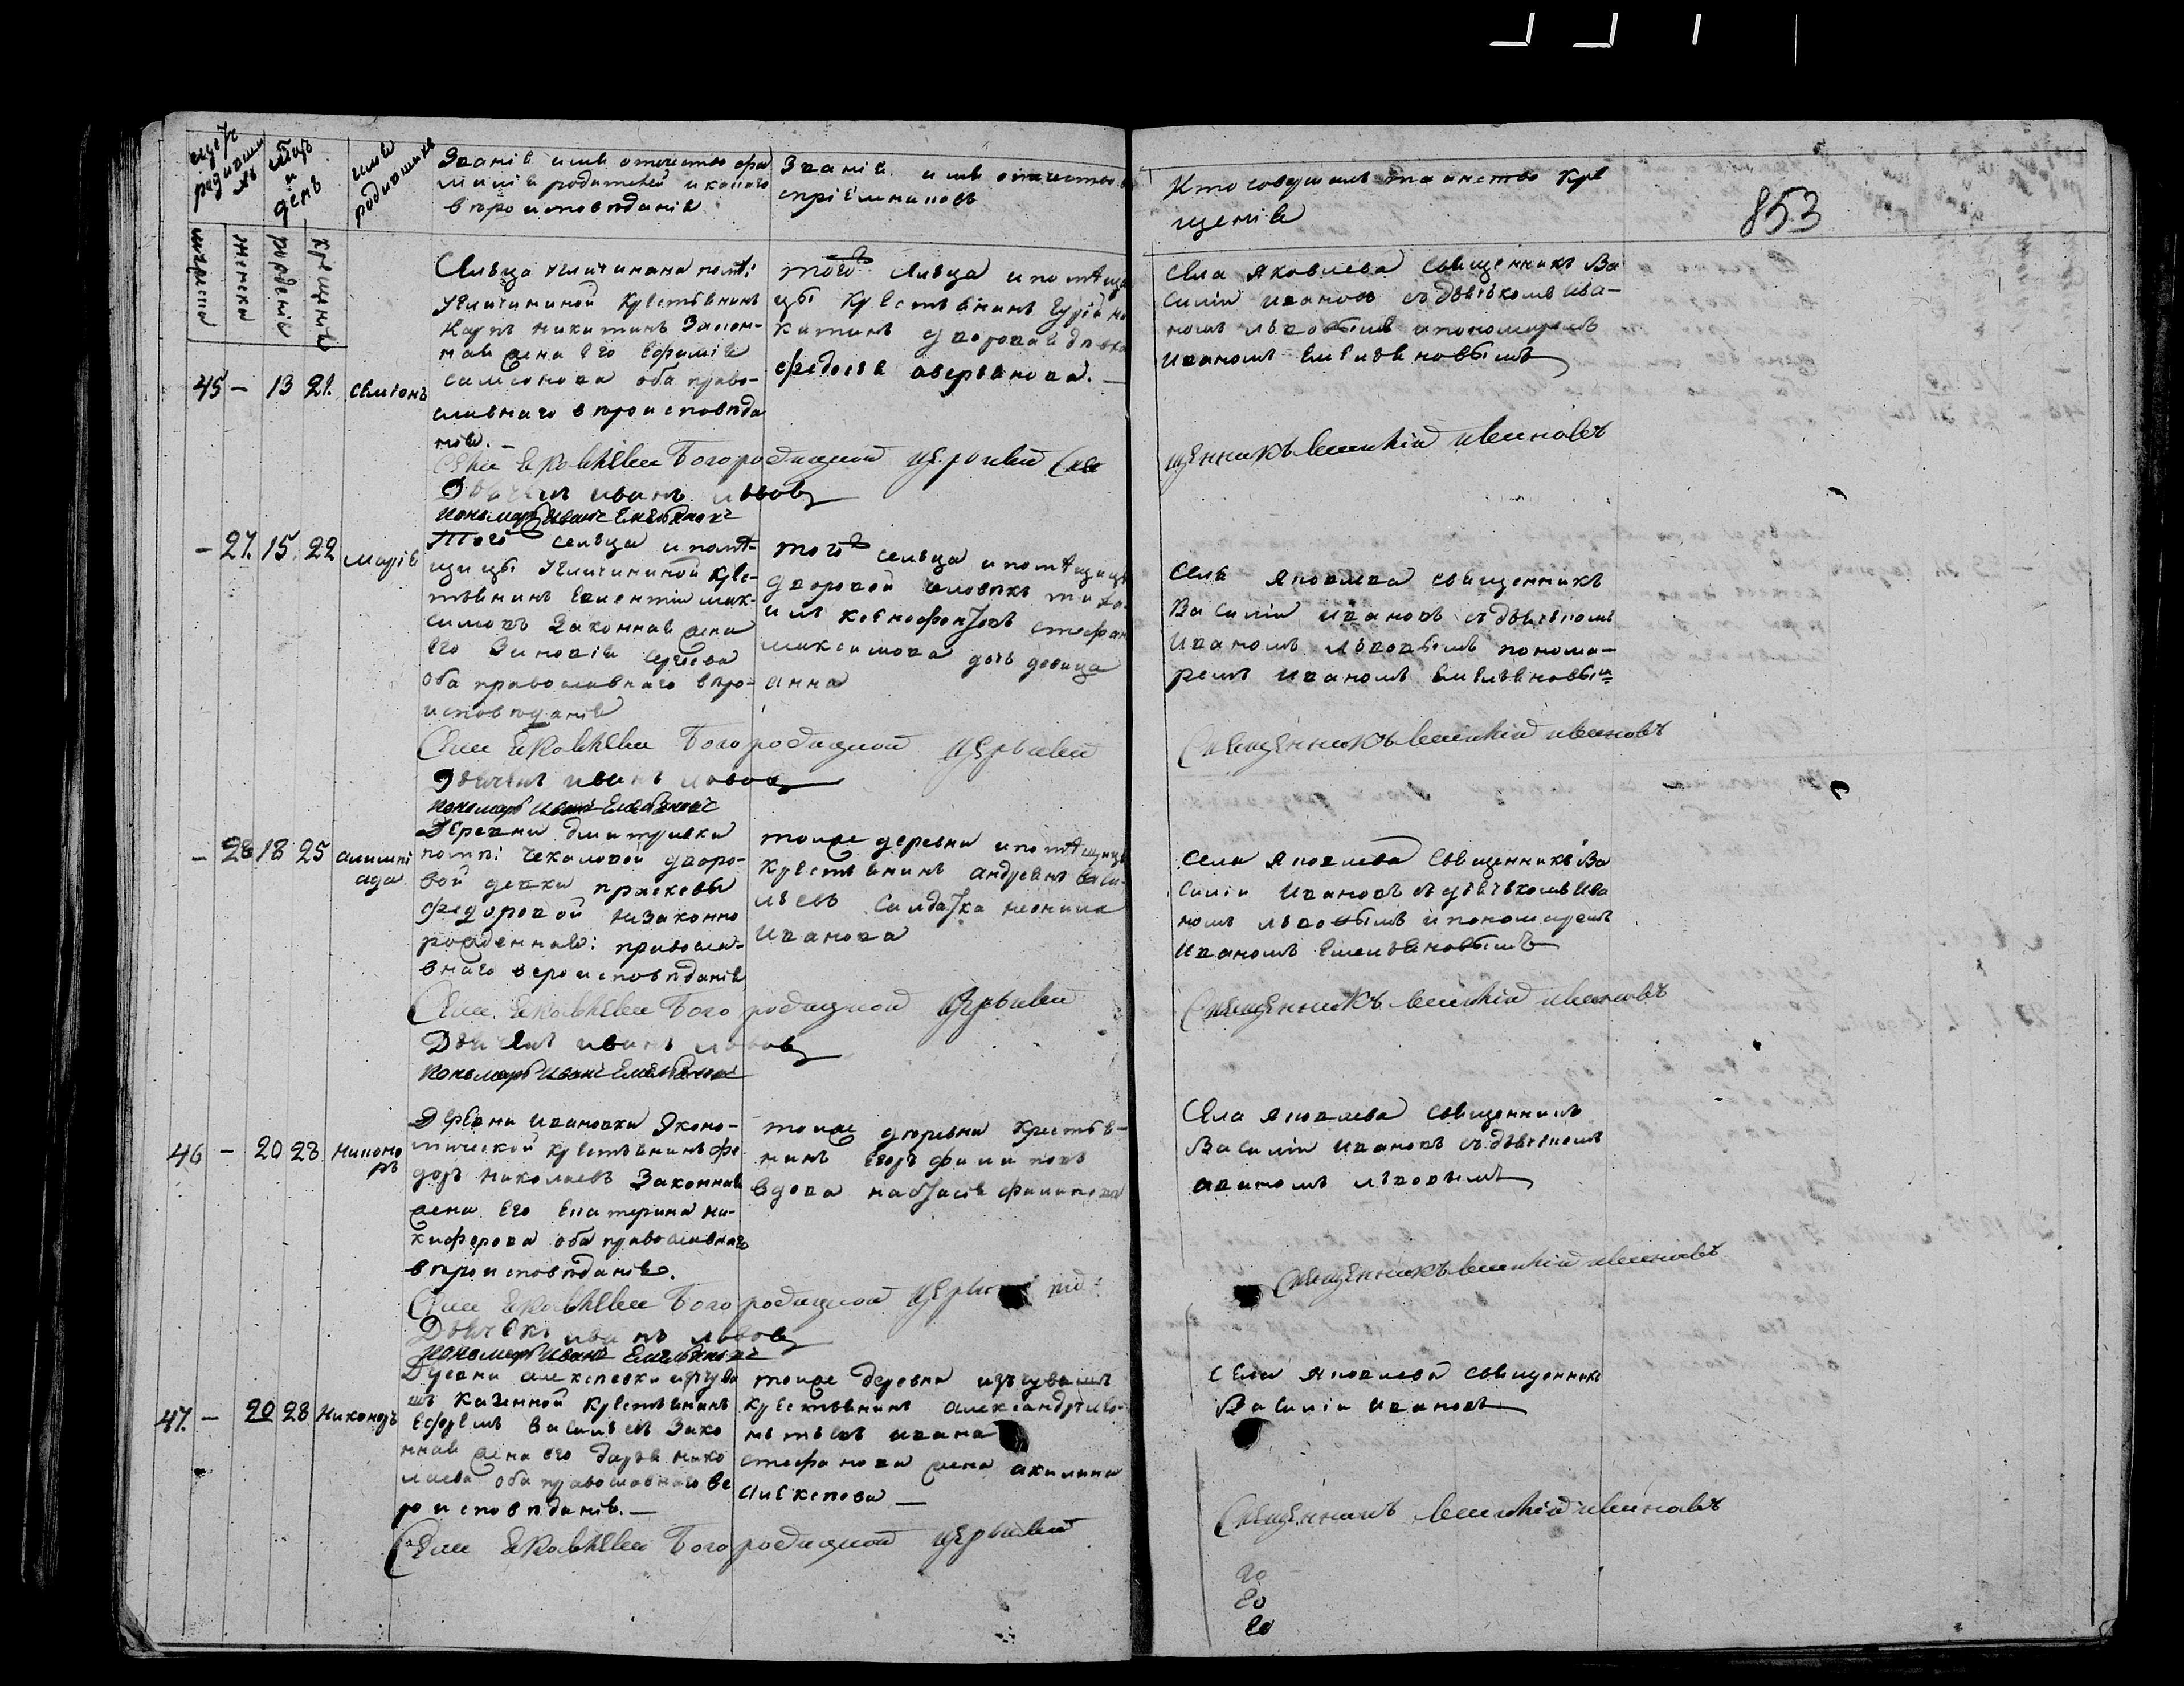 853
Званiе имя отечество фа
милiя родителей и какого
вероисповѣданiя
Званiе имя отечество
прiемниковъ
Кто совершалъ таинство кре
щенiя
мужеска
женска
рожденiя
крещенiя
имя
родившихъ
45 - 13 21. Семiонъ
крестьянинъ
Карпъ Никитинъ закон-
ная жена его Ефимiя
Самсонова оба право-
славнаго вѣроисповѣда
нiя. -
того сельца и помѣщи
цы крестьянинъ
Федосья Аверьянова. -
Села Яковлева священникъ Ва
силiй Ивановъ съ дьячкомъ Ива-
номъ Львовымъ и пономаремъ
Иваномъ Емельяновымъ
Села Яковлева Богородицкой церкви Свя
щенникъ Василiй Ивановъ
Дьячекъ Иванъ Львовъ
Пономарь Иванъ Емельяновъ
- 27. 15. 22 Марiя
Того сельца и помѣ-
щицы кре-
стьянинъ Мак-
симовъ законная жена
его Зиновiя Сергеева
оба православнаго вѣро-
исповѣданiя
того сельца и помѣщицы
дворовой человѣкъ
Ксенофонтовъ Стефан
Максимова дочь девица
Анна
Села Яковлева священникъ
Василiй Ивановъ съ дьячкомъ
Иваномъ Львовымъ понома-
ремъ Иваномъ Емельяновым
Села Яковлева Богородицкой церкви
Священникъ Василiй Ивановъ
Дьячекъ Иванъ Львовъ
Пономарь Иванъ Емельяновъ
- 28 18 25
Деревни Дмитривки
помѣ: Чекаловой дворо-
вой девки Прасковьи
Федоровой незаконно
рожденная: правосла-
внаго вероисповѣданiя
тоиже деревни и помѣщицы
крестьянинъ Андреянъ Васи-
льевъ салдатка Неонила
Иванова
Села Яковлева священникъ Ва
силiй Ивановъ съ дьячкомъ Ива
номъ Львовымъ и пономаремъ
Иваномъ Емельяновымъ
Села Яковлева Богородицкой церкви
Священникъ Василiй Ивановъ
Дьячекъ Иванъ Львовъ
Пономарь Иванъ Емельяновъ
46 - 20 28 Никоно
ръ
Деревни Ивановки Эконо-
мической крестьянинъ Фе-
доръ Николаевъ законная
жена его Екатерина Ни-
кифорова оба православнаго
вѣроисповѣданiя.
тоиже деревни крестья-
нинъ Егоръ Филиповъ
вдова Настасья Филипова
Села Яковлева священникъ
Василiй Ивановъ съ дьячкомъ
Иваномъ Львовымъ
Села Яковлева Богородицкой
Священникъ Василiй Ивановъ
Дьячекъ Иванъ Львовъ
Пономарь Иванъ Емельяновъ
47. - 20 28 Никоноръ
Деревни Алексѣевки
казенной крестьянинъ
Ефремъ Васильевъ зако
нная жена его Дарья Нико
лаева оба православнаго ве
роисповѣданiя. -
тоиже деревни
крестьянинъ Александръ
Ивана
Стефанова жена Акилина
Алексѣева -
Села Яковлева священникъ
Василiй Ивановъ
Села Яковлева Богородицкой церкви
Священникъ Василiй Ивановъ